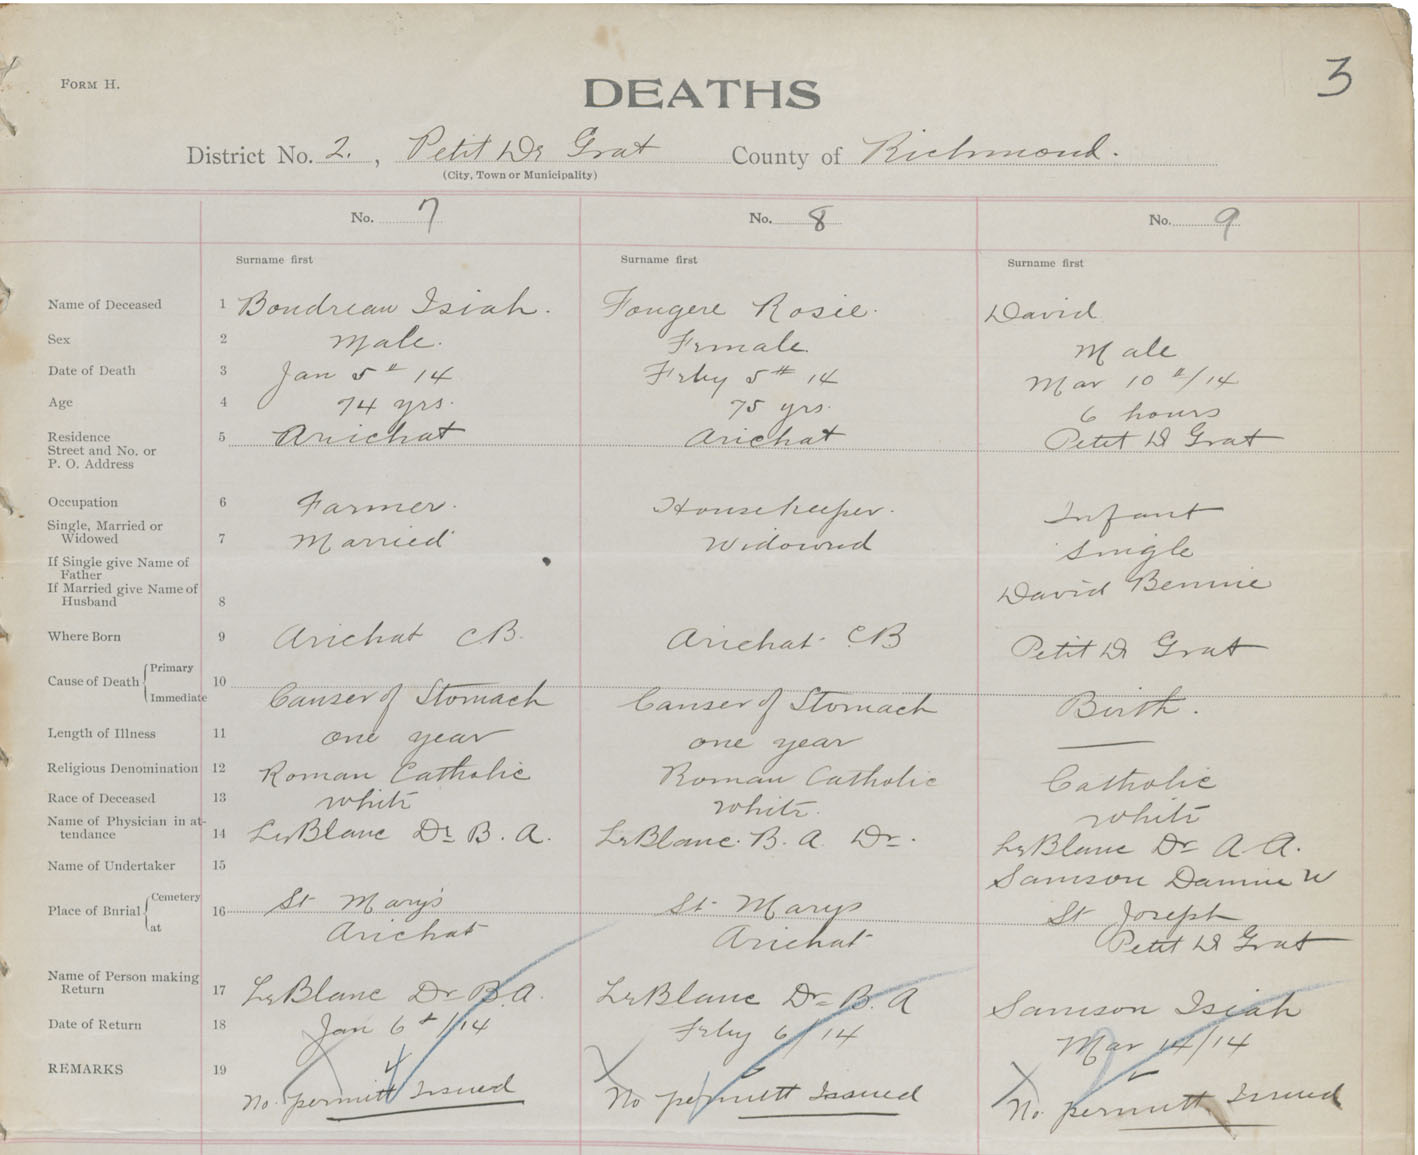 FORM H.
DEATHS
3
District No. 2. , Petit De Grat County of Richmond.
(City, Town or Municipality)
No. 7 No. 8 No. 9
Surname first Surname first Surname first
Name of Deceased 1 Boudreau Isiah. Fougere Rosie. David
Sex 2 Male. Female. Male
Date of Death 3 Jan 5th 14 Feby 5th 14 Mar 10th/14
Age 4 74 yrs. 75 yrs. 6 hours
Residence 5 Arichat Arichat Petit D Grat
Street and No. or
P. O. Address
Occupation 6 Farmer. Housekeeper. Infant
Single, Married or
Widowed 7 Married Widowed Single
If Single give Name of
Father
If Married give Name of David Bennie
Husband 8
Where Born 9 Arichat CB. Arichat CB Petit D Grat
Primary
Cause of Death 10
Immediate Canser of Stomach Canser of Stomach Birth.
Length of Illness 11 one year one year
Religious Denomination 12 Roman Catholic Roman Catholic Catholic
Race of Deceased 13 White White. White
Name of Physician in at-
tendance 14 LeBlanc Dr B. A. LeBlanc. B. A Dr. LeBlanc Dr A A.
Name of Undertaker 15 Samson W
Cemetery St Mary's St Marys St Joseph
Place of Burial 16
at Arichat Arichat Petit D Grat
Name of Person making
Return 17 LeBlanc Dr B.A. LeBlanc Dr B. A Samson Isiah
Date of Return 18 Jan 6th/14 Feby 6/14 Mar 14/14
REMARKS 19
No. permitt Issued No permitt Issued No. permitt Issued